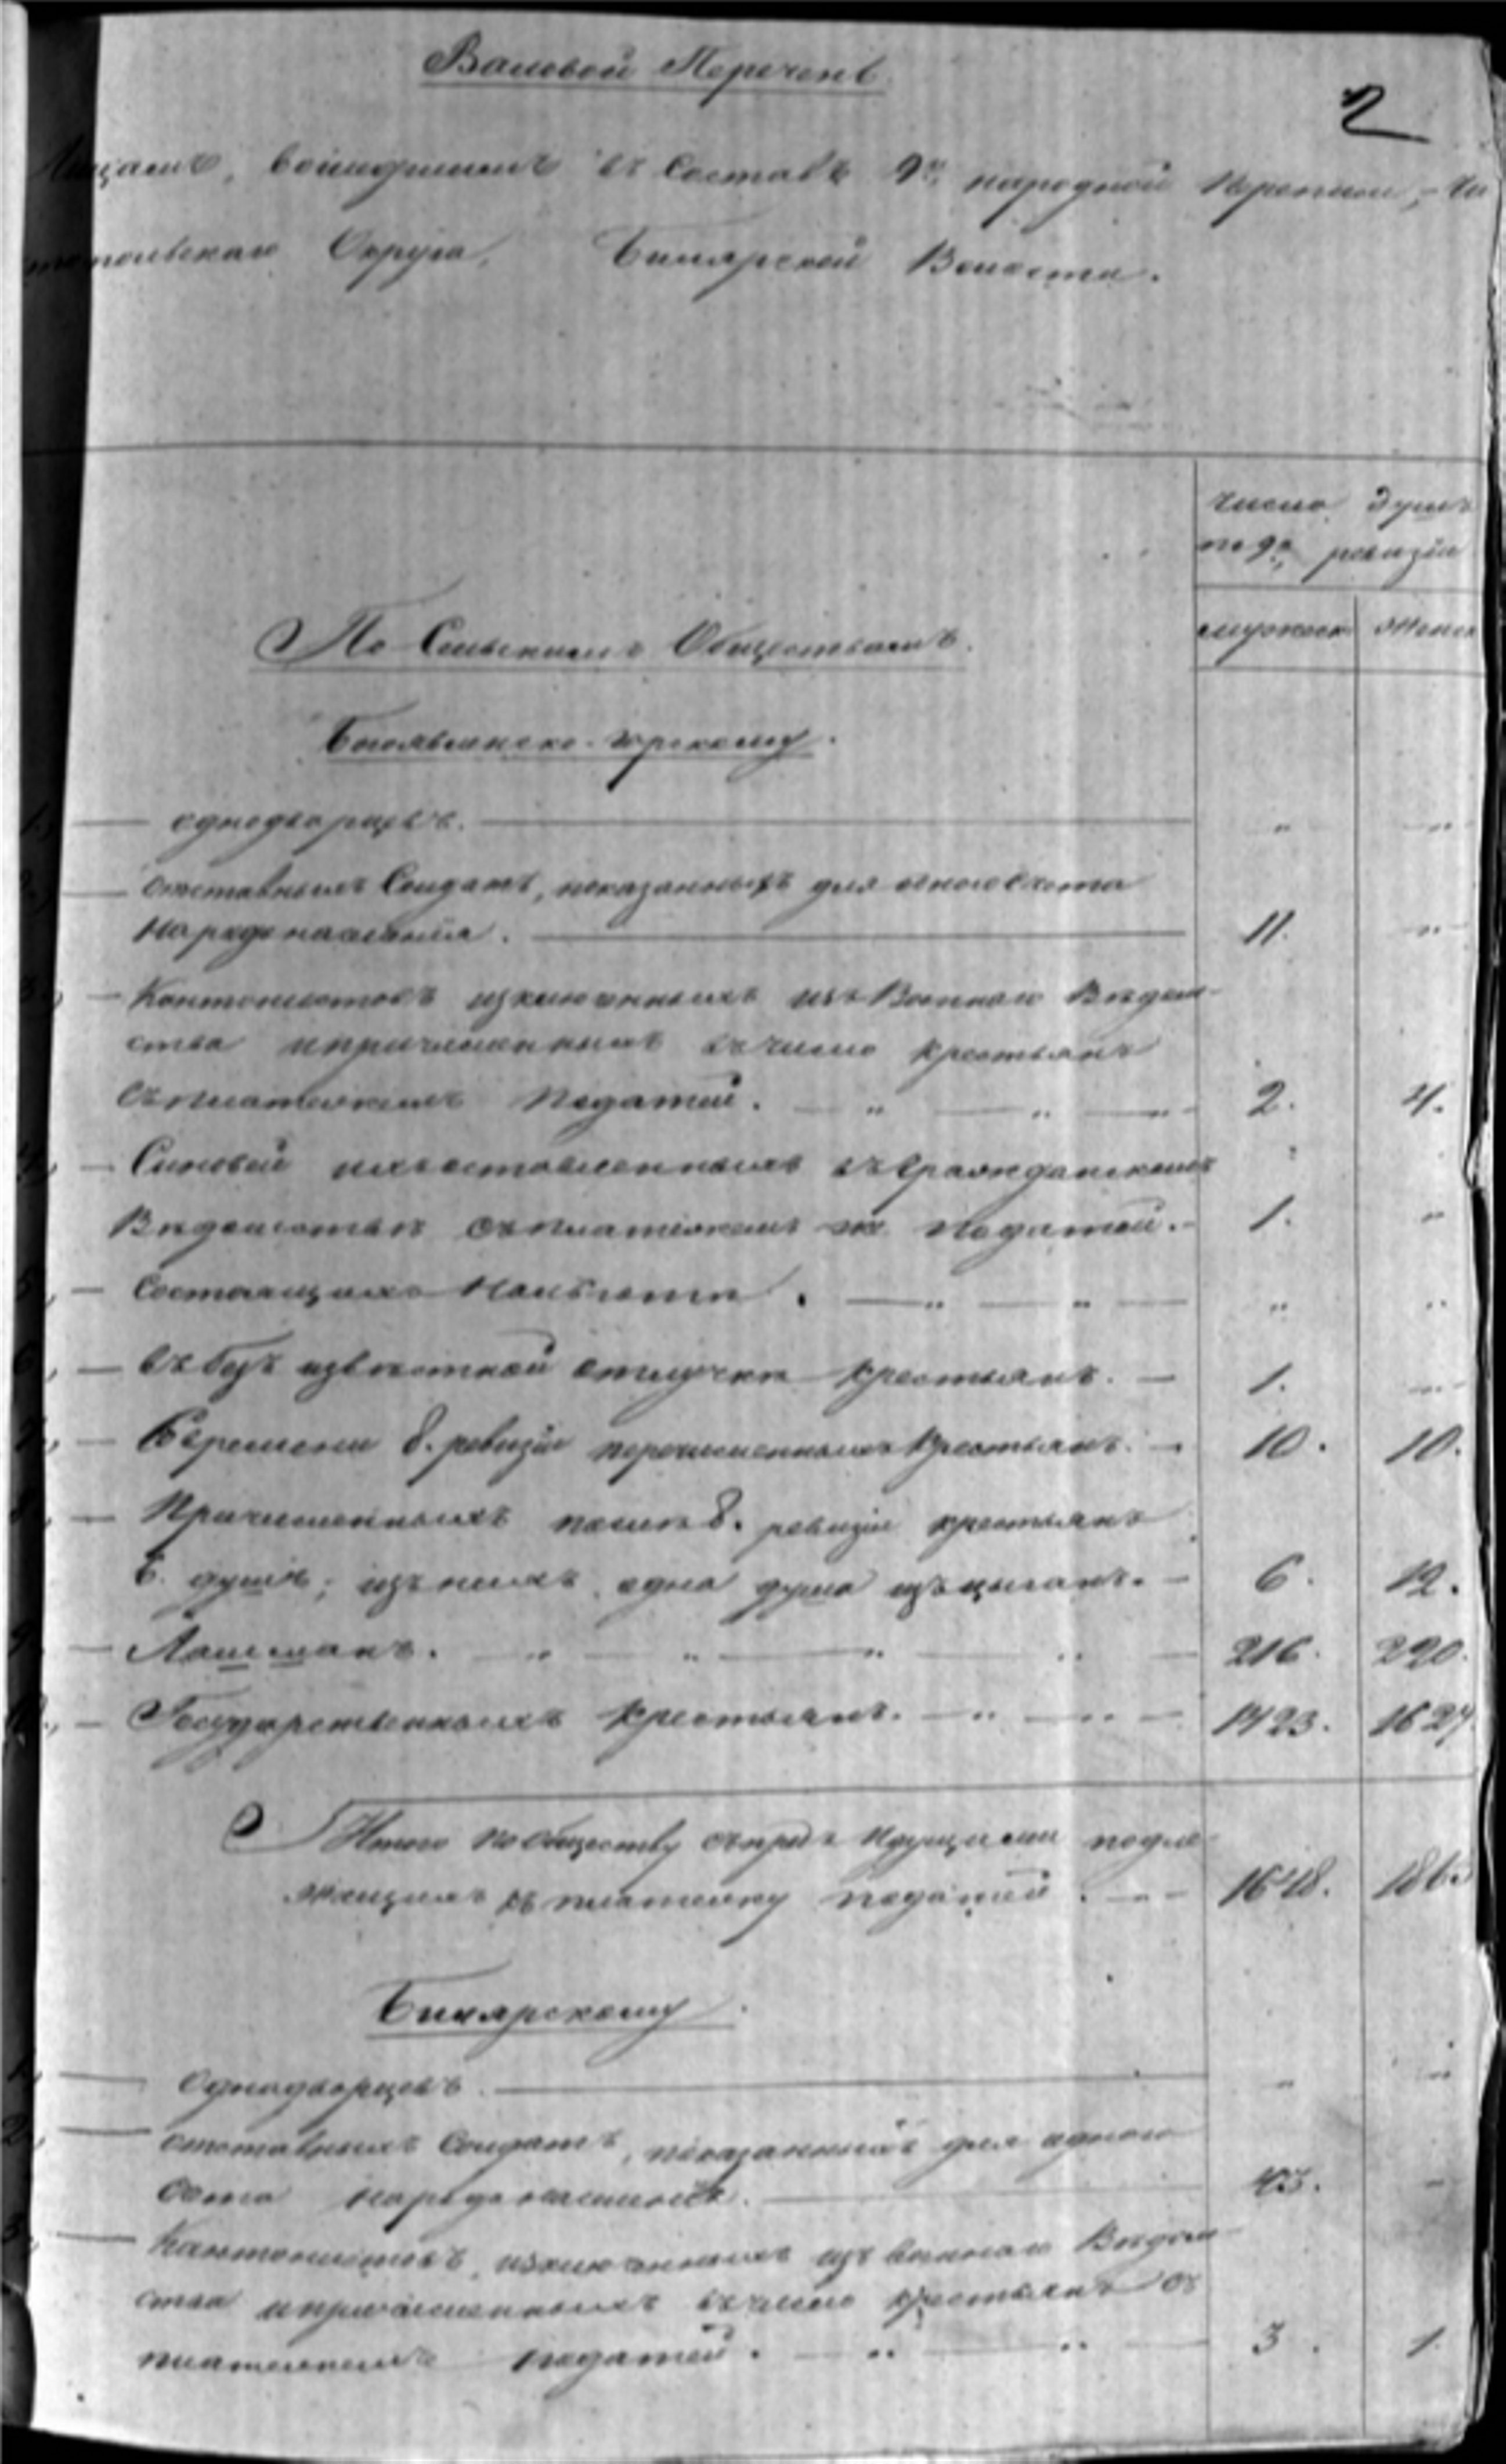 Валовой Перечень
2
Лицамъ, вошедшимъ въ Составъ 9й народной переписи, - Чи
стопольскаго Округа, Билярской Волости.
Число душъ
по 9й ревизіи
мужеск. Женс
По Сельскимъ Обществамъ.
Богоявленско-горскому.
однодворцевъ. — " "
отставныхъ Солдатъ, показанныхъ для одного счета
Народонаселенія. — 11. "
Кантонистовъ изключенныхъ изъ Военнаго Вѣдом-
ства и причисленныхъ въ число крестьянъ
съ платежемъ Податей. — " — " — 2. 4.
Сыновей ихъ оставленныхъ въ Гражданскомъ
Вѣдомствѣ съ платежемъ Податей. - 1. "
Состоящихъ На льготѣ. — " — " — " "
въ безъ извѣстной отлучкѣ крестьянъ. — 1. "
Современи 8. ревизіи перечисленныхъ Крестьянъ. — 10. 10.
Причисленныхъ послѣ 8. ревизіи крестьянъ
6. душъ; изъ нихъ одна душа изъ цыганъ. — 6. 12.
Лашманъ. — " — " — " — " — 216. 220.
Государственныхъ крестьянъ. — " — " — 1423. 1627.
Итого по Обществу съ предъидущими подле-
жащихъ къ платежу податей. — 1648.
Билярскому.
Однодворцевъ. — " "
отставныхъ Солдатъ, показанныхъ для одного
счета народонаселенія. — 43. -
Кантонистовъ, изключенныхъ изъ военнаго Вѣдом-
ства и причисленныхъ въ число крестьянъ съ
платежемъ податей. — " — " — 3. 1